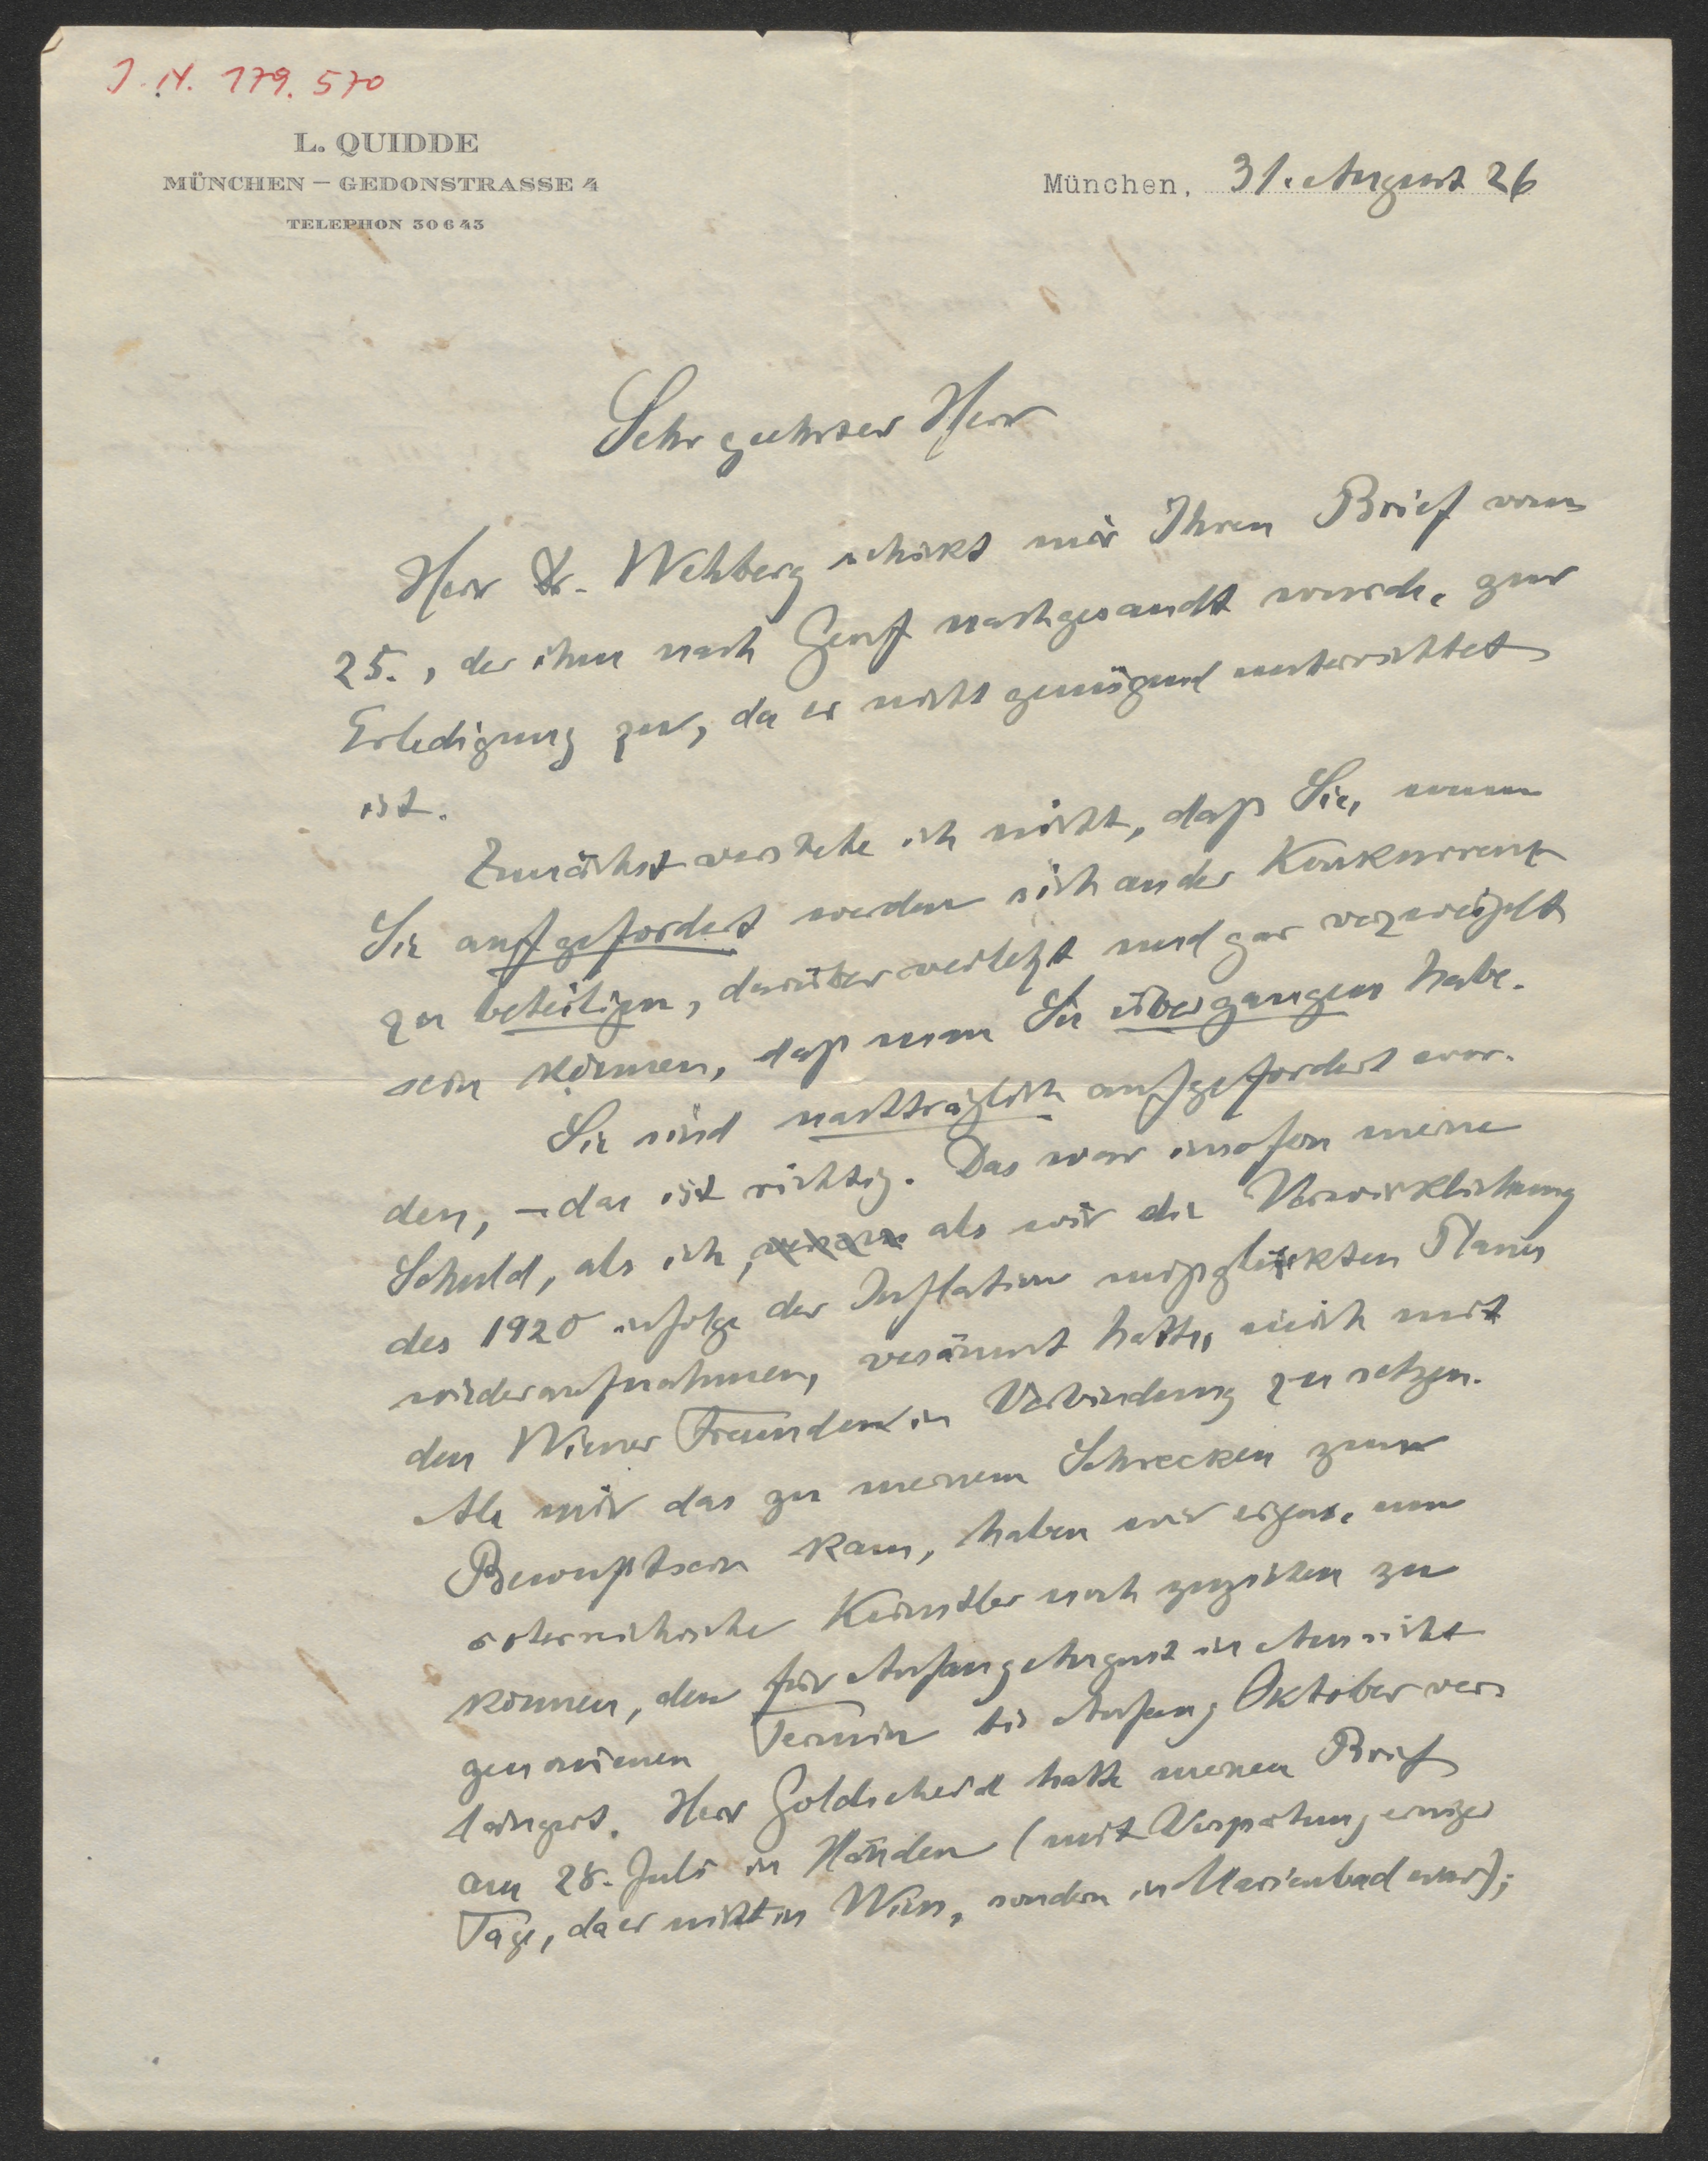 J. N. 179.570
L. QUIDDE
MÜNCHEN – GEDONSTRASSE 4
TELEPHON 30643
München, 31. August 26
Sehr geehrter Herr
Herr Dr. Wehberg schickt mir Ihren Brief vom
25., der ihm nach Genf nachgesandt wurde, zur
Erledigung zu, da er nicht genügend unterrichtet
ist.
Zunächst verstehe ich nicht, daß Sie, wenn
Sie aufgefordert werden sich an der Konkurrenz
zu beteiligen, darüber verletzt und gar verzweifelt
sein können, daß man Sie übergangen habe.
Sie sind nachträglich aufgefordert wor-
den, – das ist richtig. Das war insofern meine
Schuld, als ich, als wir die Verwirklichung
des 1920 infolge der Inflation mißglückten Planes
wiederaufnahmen, versäumt hatte, mich mit
den Wiener Freunden in Verbindung zu setzen.
Als mir das zu meinem Schrecken zum
Bewußtsein kam, haben wir eigens, um
österreichische Künstler noch zuziehen zu
können, den für Anfang August in Aussicht
genommenen Termin bis Anfang Oktober ver-
längert. Herr Goldscheid hatte meinen Brief
am 28. Juli in Händen (mit Verspätung einiger
Tage, da er nicht in Wien, sondern in Marienbad war);